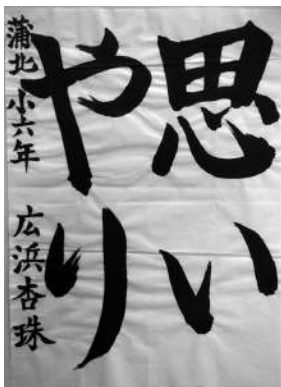 思い
やり
蒲北小六年 広浜杏珠